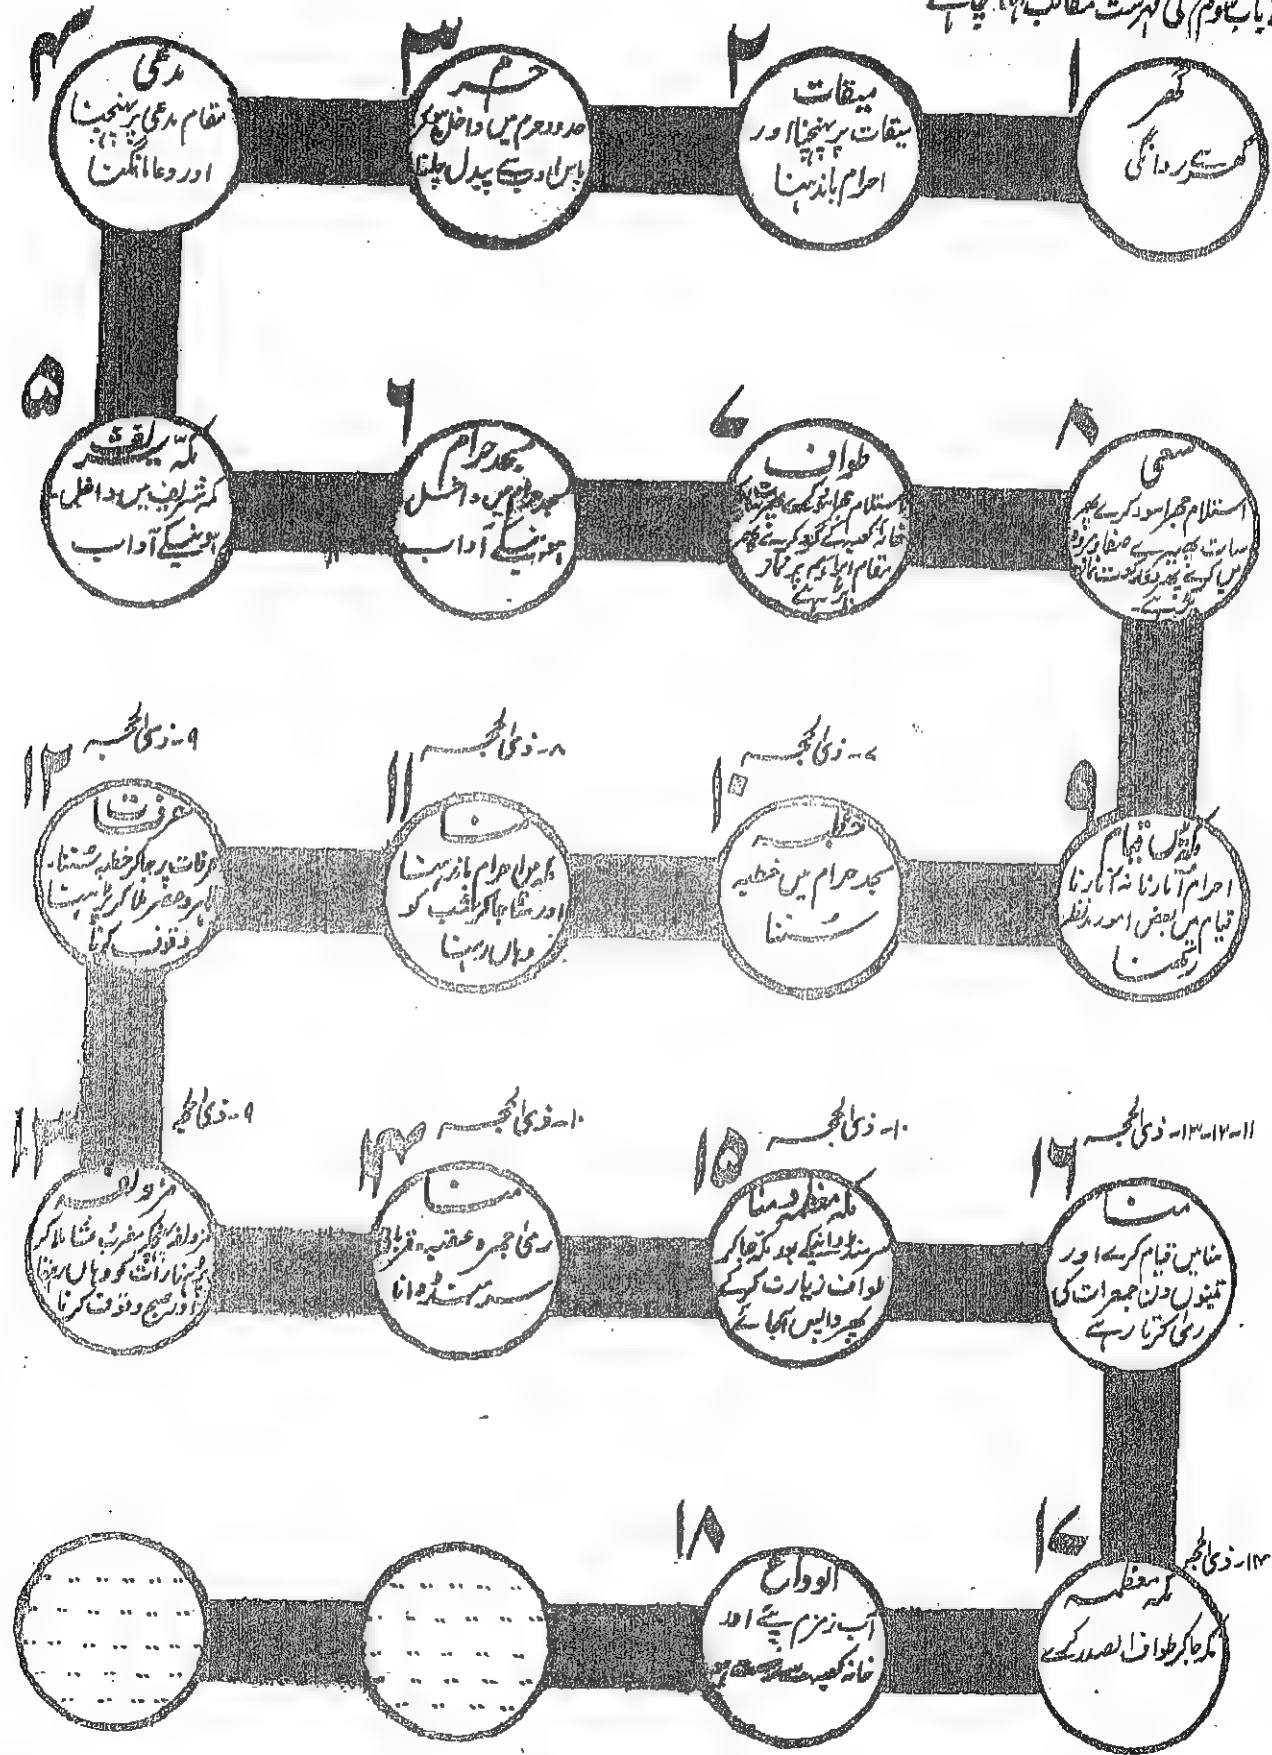 باب سوم کی فہرست مطالب
۱
گھر
گھر سے روانگی
۲
میقات
میقات پر پہنچنا اور
احرام باندہنا
۳
حرم
حدود حرم میں داخل ہو کر
پاس ادب سے پیدل چلنا
۴
مدعی
مقام مدعی پر پہنچنا
اور دعا مانگنا
۵
مکہ شریف
مکہ شریف میں داخل
ہونیکے آداب
۶
مسجد حرام
مسجد حرام میں داخل
ہونیکے آداب
۷
طواف
استلام حجر اسود کرے پھر سات
خانہ کعبہ کے گرد کرے پھر
مقام ابراہیم پر نماز
پڑہے
۸
سعی
استلام حجر اسود کرے پھر
سات پھیرے صفا و مروہ
میں کرے پھر دو رکعت نماز
پڑہے۔
۹
مکہ میں قیام
احرام اُتارنا نہ اُتارنا
قیام میں بعض امور مدنظر
رکھنا
۱۰
۷۔ ذی الحجہ
خطبہ
مسجد حرام میں خطبہ
سُننا
۱۱
۸۔ ذی الحجہ
منا
حج کا احرام باندہنا
اور منا جا کر شب کو
وہاں رہنا
۱۲
۹۔ ذی الحجہ
عرفات
عرفات پر جا کر خطبہ سُننا۔
ظہر و عصر ملا کر پڑہنا
وقوف کرنا
۱۳
۹۔ ذی الحجہ
مزدلفہ
مزدلفہ مغرب عشا ملا کر
پڑہنا رات کو وہاں رہنا
اور صبح وقوف کرنا
۱۴
۱۰۔ ذی الحجہ
منا
رمی جمرہ عقبہ۔ قربانی
سر منڈوانا
۱۵
۱۰۔ ذی الحجہ
مکہ معظمہ و منا
سر منڈوانیکے بعد مکہ جا کر
طواف زیارت کرے
پھر واپس آجائے
۱۶
۱۱-۱۲-۱۳۔ ذی الحجہ
منا
منا میں قیام کرے اور
تینوں دن جمعرات کی
رمی کرتا رہے
۱۷
ذی الحجہ
مکہ معظمہ
مکہ جا کر طواف الصدر کرے
۱۸
الوداع
آب زمزم پئے اور
خانہ کعبہ سے